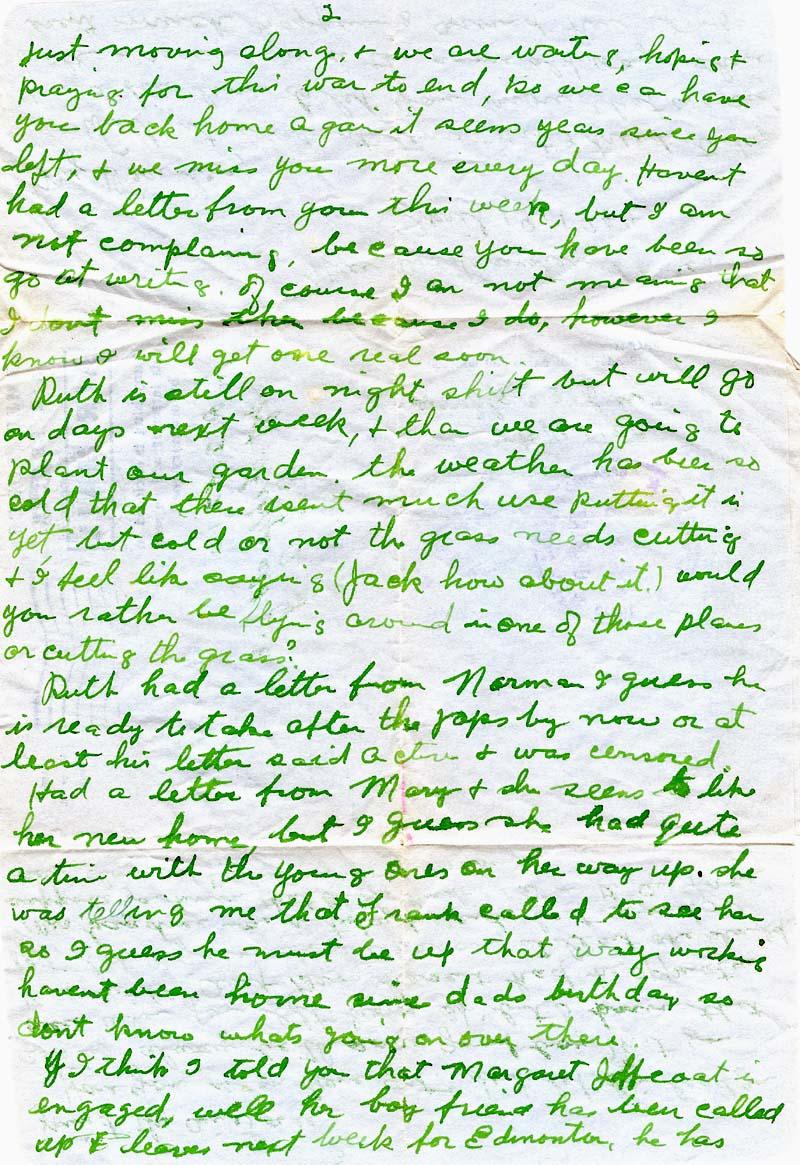 2
just moving along, & we are waiting, hoping &
praying for this war to end, so we can have
you back home again it seems years since you
left, & we miss you more every day. Havent
had a letter from you this week, but I am
not complaining, because you have been so
go at writing. Of course I am not meaning that
I dont miss them because I do, however I
know I will get one real soon.
Ruth is still on night shift but will go
on days next week, & than we are going to
plant our garden. the weather has been so
cold that there isent much use putting it in
yet but cold or not the grass needs cutting
& I feel like saying (Jack how about it.) would
you rather be flying around in one of those planes
or cutting the grass?
Ruth had a letter from Norman I guess he
is ready to take after the Japs by now or at
least his letter said active & was censored.
Had a letter from Mary & she seems to like
her new home, but I guess she had quite
a time with the young ones on her way up. she
was telling me that Frank called to see her
so I guess he must be up that way working
havent been home since dads birthday so
dont know whats going on over there.
I think I told you that Margaret Jeffcoat is
engaged, well her boy friend has been called
up & leaves next week for Edmonton, he has